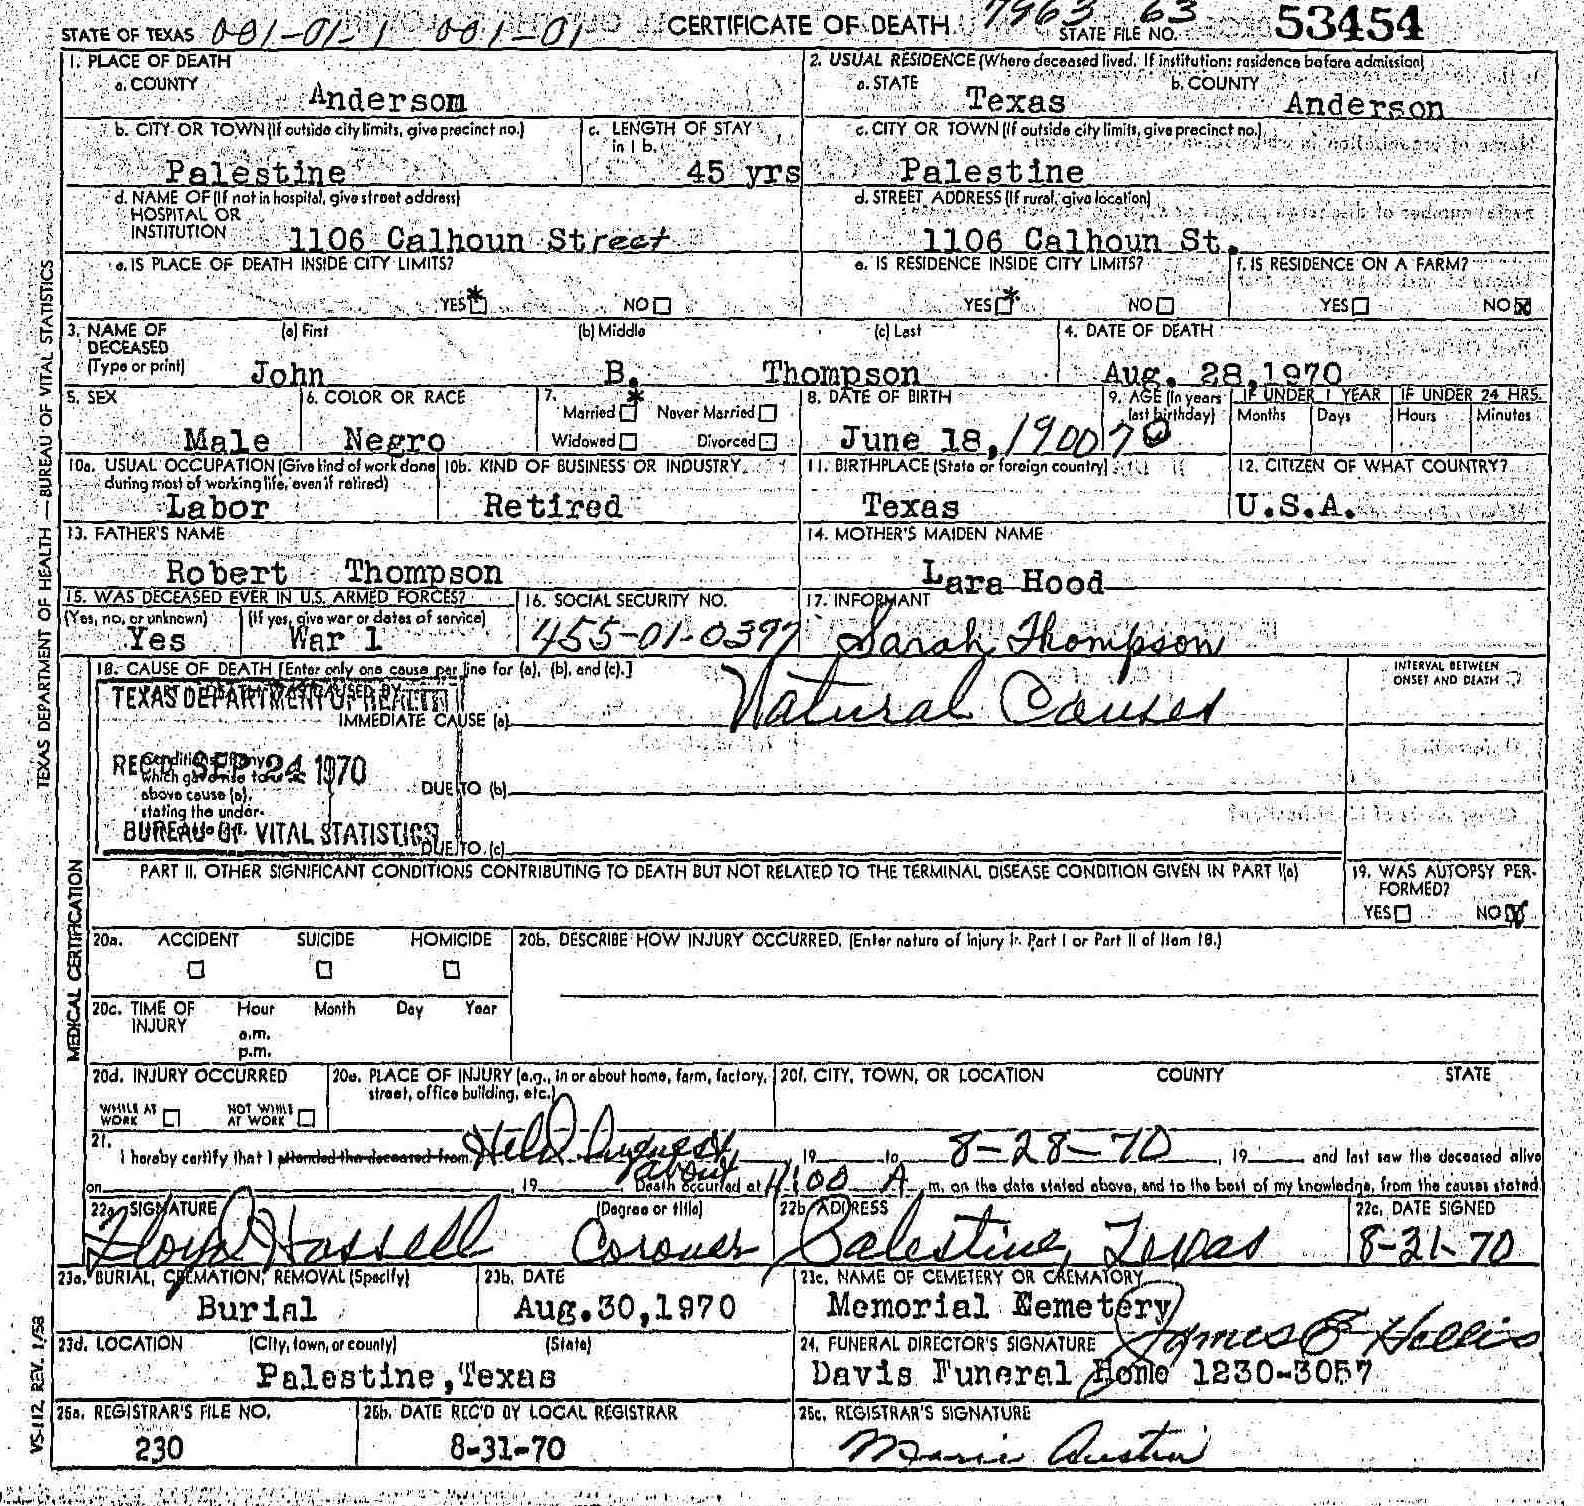 STATE OF TEXAS 001-01-1 001-01 CERTIFICATE OF DEATH 7963 63 STATE FILE NO. 53454
1. PLACE OF DEATH
a. COUNTY
Anderson
2. USUAL RESIDENCE (Where deceased lived. If institution: residence before admission)
a. STATE
Texas
b. COUNTY
Anderson
b. CITY OR TOWN (If outside city limits, give precinct no.)
Palestine
c. LENGTH OF STAY
in 1 b.
45 yrs
c. CITY OR TOWN (If outside city limits, give precinct no.)
Palestine
d. NAME OF (If not in hospital, give street address)
HOSPITAL OR
INSTITUTION
1106 Calhoun Street
d. STREET ADDRESS (If rural, give location)
1106 Calhoun St.
e. IS PLACE OF DEATH INSIDE CITY LIMITS?
YES * NO
e. IS RESIDENCE INSIDE CITY LIMITS?
YES * NO
f. IS RESIDENCE ON A FARM?
YES NO X
3. NAME OF
DECEASED
(Type or print)
(a) First
John
(b) Middle
B.
(c) Last
Thompson
4. DATE OF DEATH
Aug. 28,1970
5. SEX
Male
6. COLOR OR RACE
Negro
7. *
Married Never Married
Widowed Divorced
8. DATE OF BIRTH
June 18, 1900
9. AGE (In years
last birthday)
70
IF UNDER 1 YEAR
Months Days
IF UNDER 24 HRS.
Hours Minutes
10a. USUAL OCCUPATION (Give kind of work done
during most of working life, even if retired)
Labor
10b. KIND OF BUSINESS OR INDUSTRY
Retired
11. BIRTHPLACE (State or foreign country)
Texas
12. CITIZEN OF WHAT COUNTRY?
U.S.A.
13. FATHER'S NAME
Robert Thompson
14. MOTHER'S MAIDEN NAME
Lara Hood
15. WAS DECEASED EVER IN U.S. ARMED FORCES?
(Yes, no, or unknown)
Yes
(If yes, give war or dates of service)
War 1
16. SOCIAL SECURITY NO.
455-01-0397
17. INFORMANT
Sarah Thompson
18. CAUSE OF DEATH [Enter only one cause per line for (a), (b), and (c).]
INTERVAL BETWEEN
ONSET AND DEATH
TEXAS DEPARTMENT OF HEALTH
IMMEDIATE CAUSE (a) Natural Causes
REC'D SEP 24 1970
which gave rise to
above cause (a),
stating the under-
DUE TO (b)
BUREAU OF VITAL STATISTICS
DUE TO (c)
PART II. OTHER SIGNIFICANT CONDITIONS CONTRIBUTING TO DEATH BUT NOT RELATED TO THE TERMINAL DISEASE CONDITION GIVEN IN PART I(a)
19. WAS AUTOPSY PER-
FORMED?
YES NO X
20a. ACCIDENT SUICIDE HOMICIDE
20b. DESCRIBE HOW INJURY OCCURRED. (Enter nature of injury in Part I or Part II of Item 18.)
20c. TIME OF
INJURY
Hour Month Day Year
a.m.
p.m.
20d. INJURY OCCURRED
WHILE AT
WORK
NOT WHILE
AT WORK
20e. PLACE OF INJURY (e.g., in or about home, farm, factory,
street, office building, etc.)
20f. CITY, TOWN, OR LOCATION COUNTY STATE
21.
I hereby certify that I attended the deceased from Held Inquest, 19 to 8-28-70, 19 and last saw the deceased alive
on , 19 about Death occurred at 4:00 A m, on the date stated above, and to the best of my knowledge, from the causes stated.
22a. SIGNATURE (Degree or title)
Floyd Hassell Coroner
22b. ADDRESS
Palestine, Texas
22c. DATE SIGNED
8-31-70
23a. BURIAL, CREMATION, REMOVAL (Specify)
Burial
23b. DATE
Aug.30,1970
23c. NAME OF CEMETERY OR CREMATORY
Memorial Cemetery
23d. LOCATION (City, town, or county) (State)
Palestine,Texas
24. FUNERAL DIRECTOR'S SIGNATURE James E Hollis
Davis Funeral Home 1230-3057
25a. REGISTRAR'S FILE NO.
230
25b. DATE REC'D BY LOCAL REGISTRAR
8-31-70
25c. REGISTRAR'S SIGNATURE
Marie Austin
TEXAS DEPARTMENT OF HEALTH — BUREAU OF VITAL STATISTICS
MEDICAL CERTIFICATION
VS-112, REV. 1/58